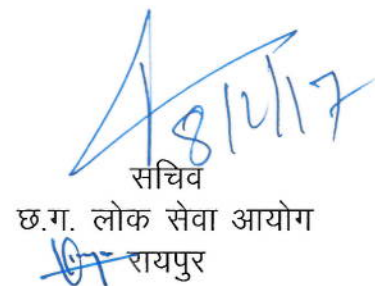 8/2/17
सचिव
छ.ग. लोक सेवा आयोग
रायपुर